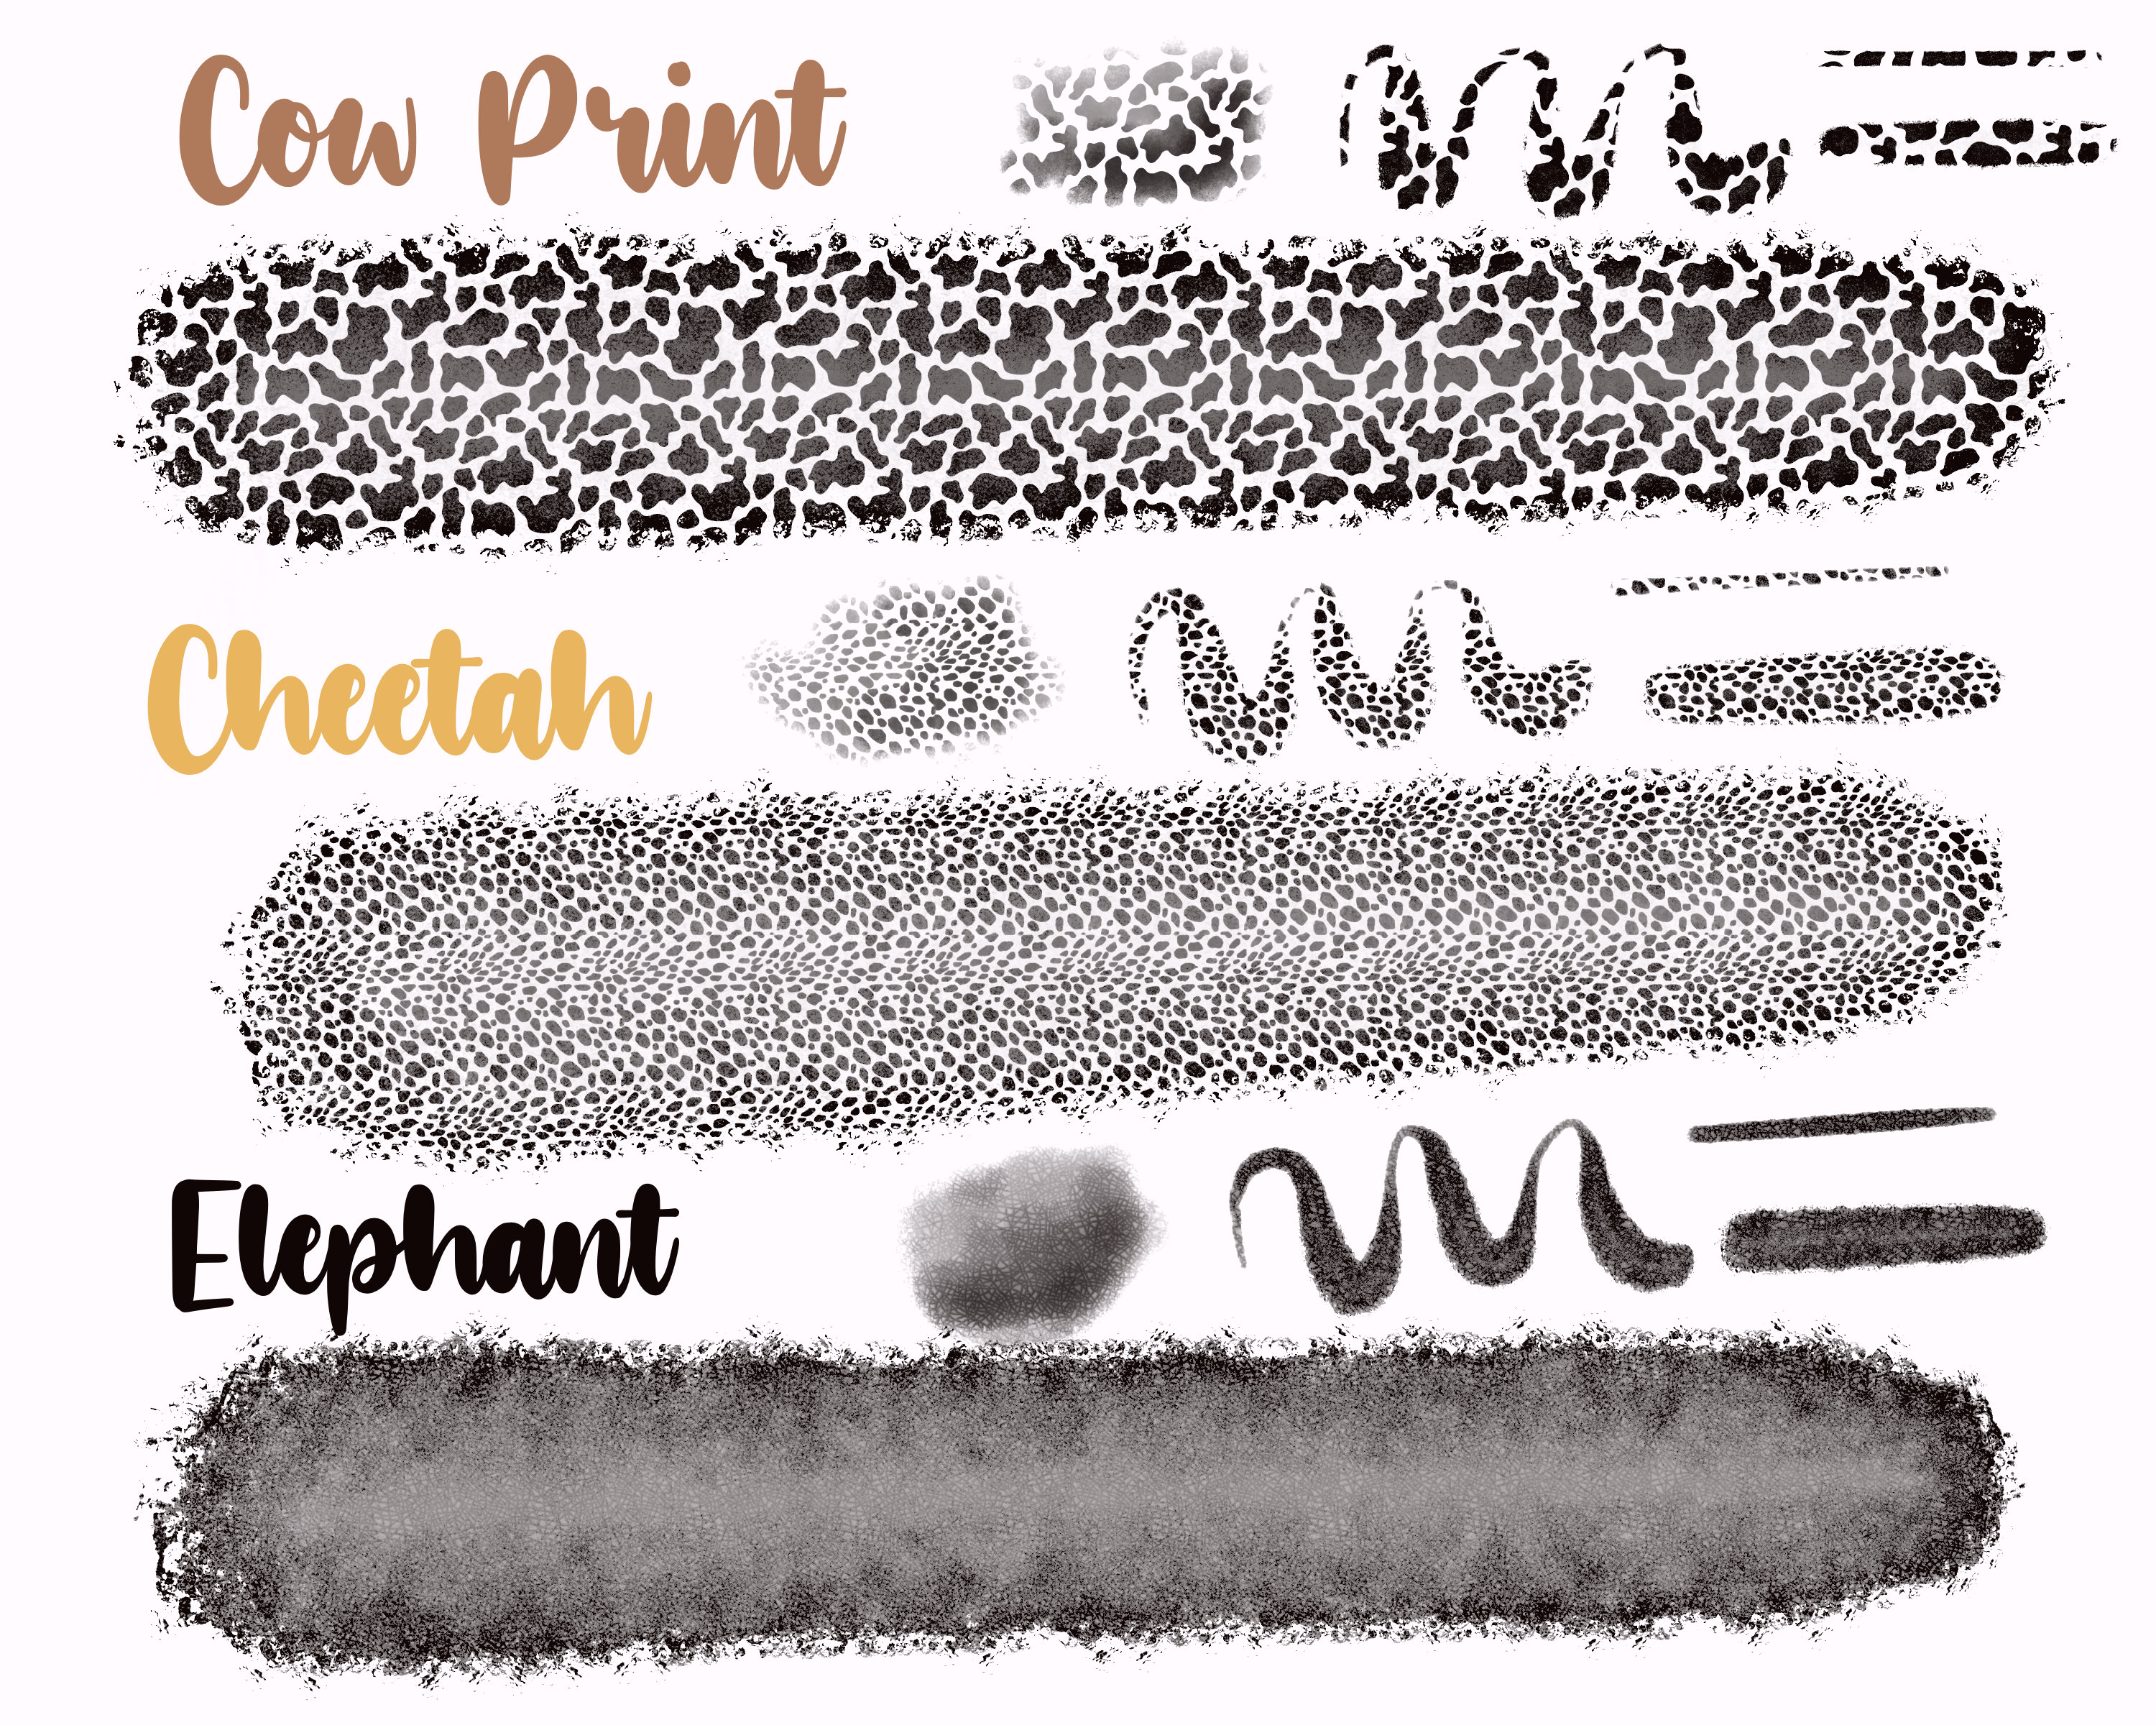 Cow Print
Cheetah
Elephant